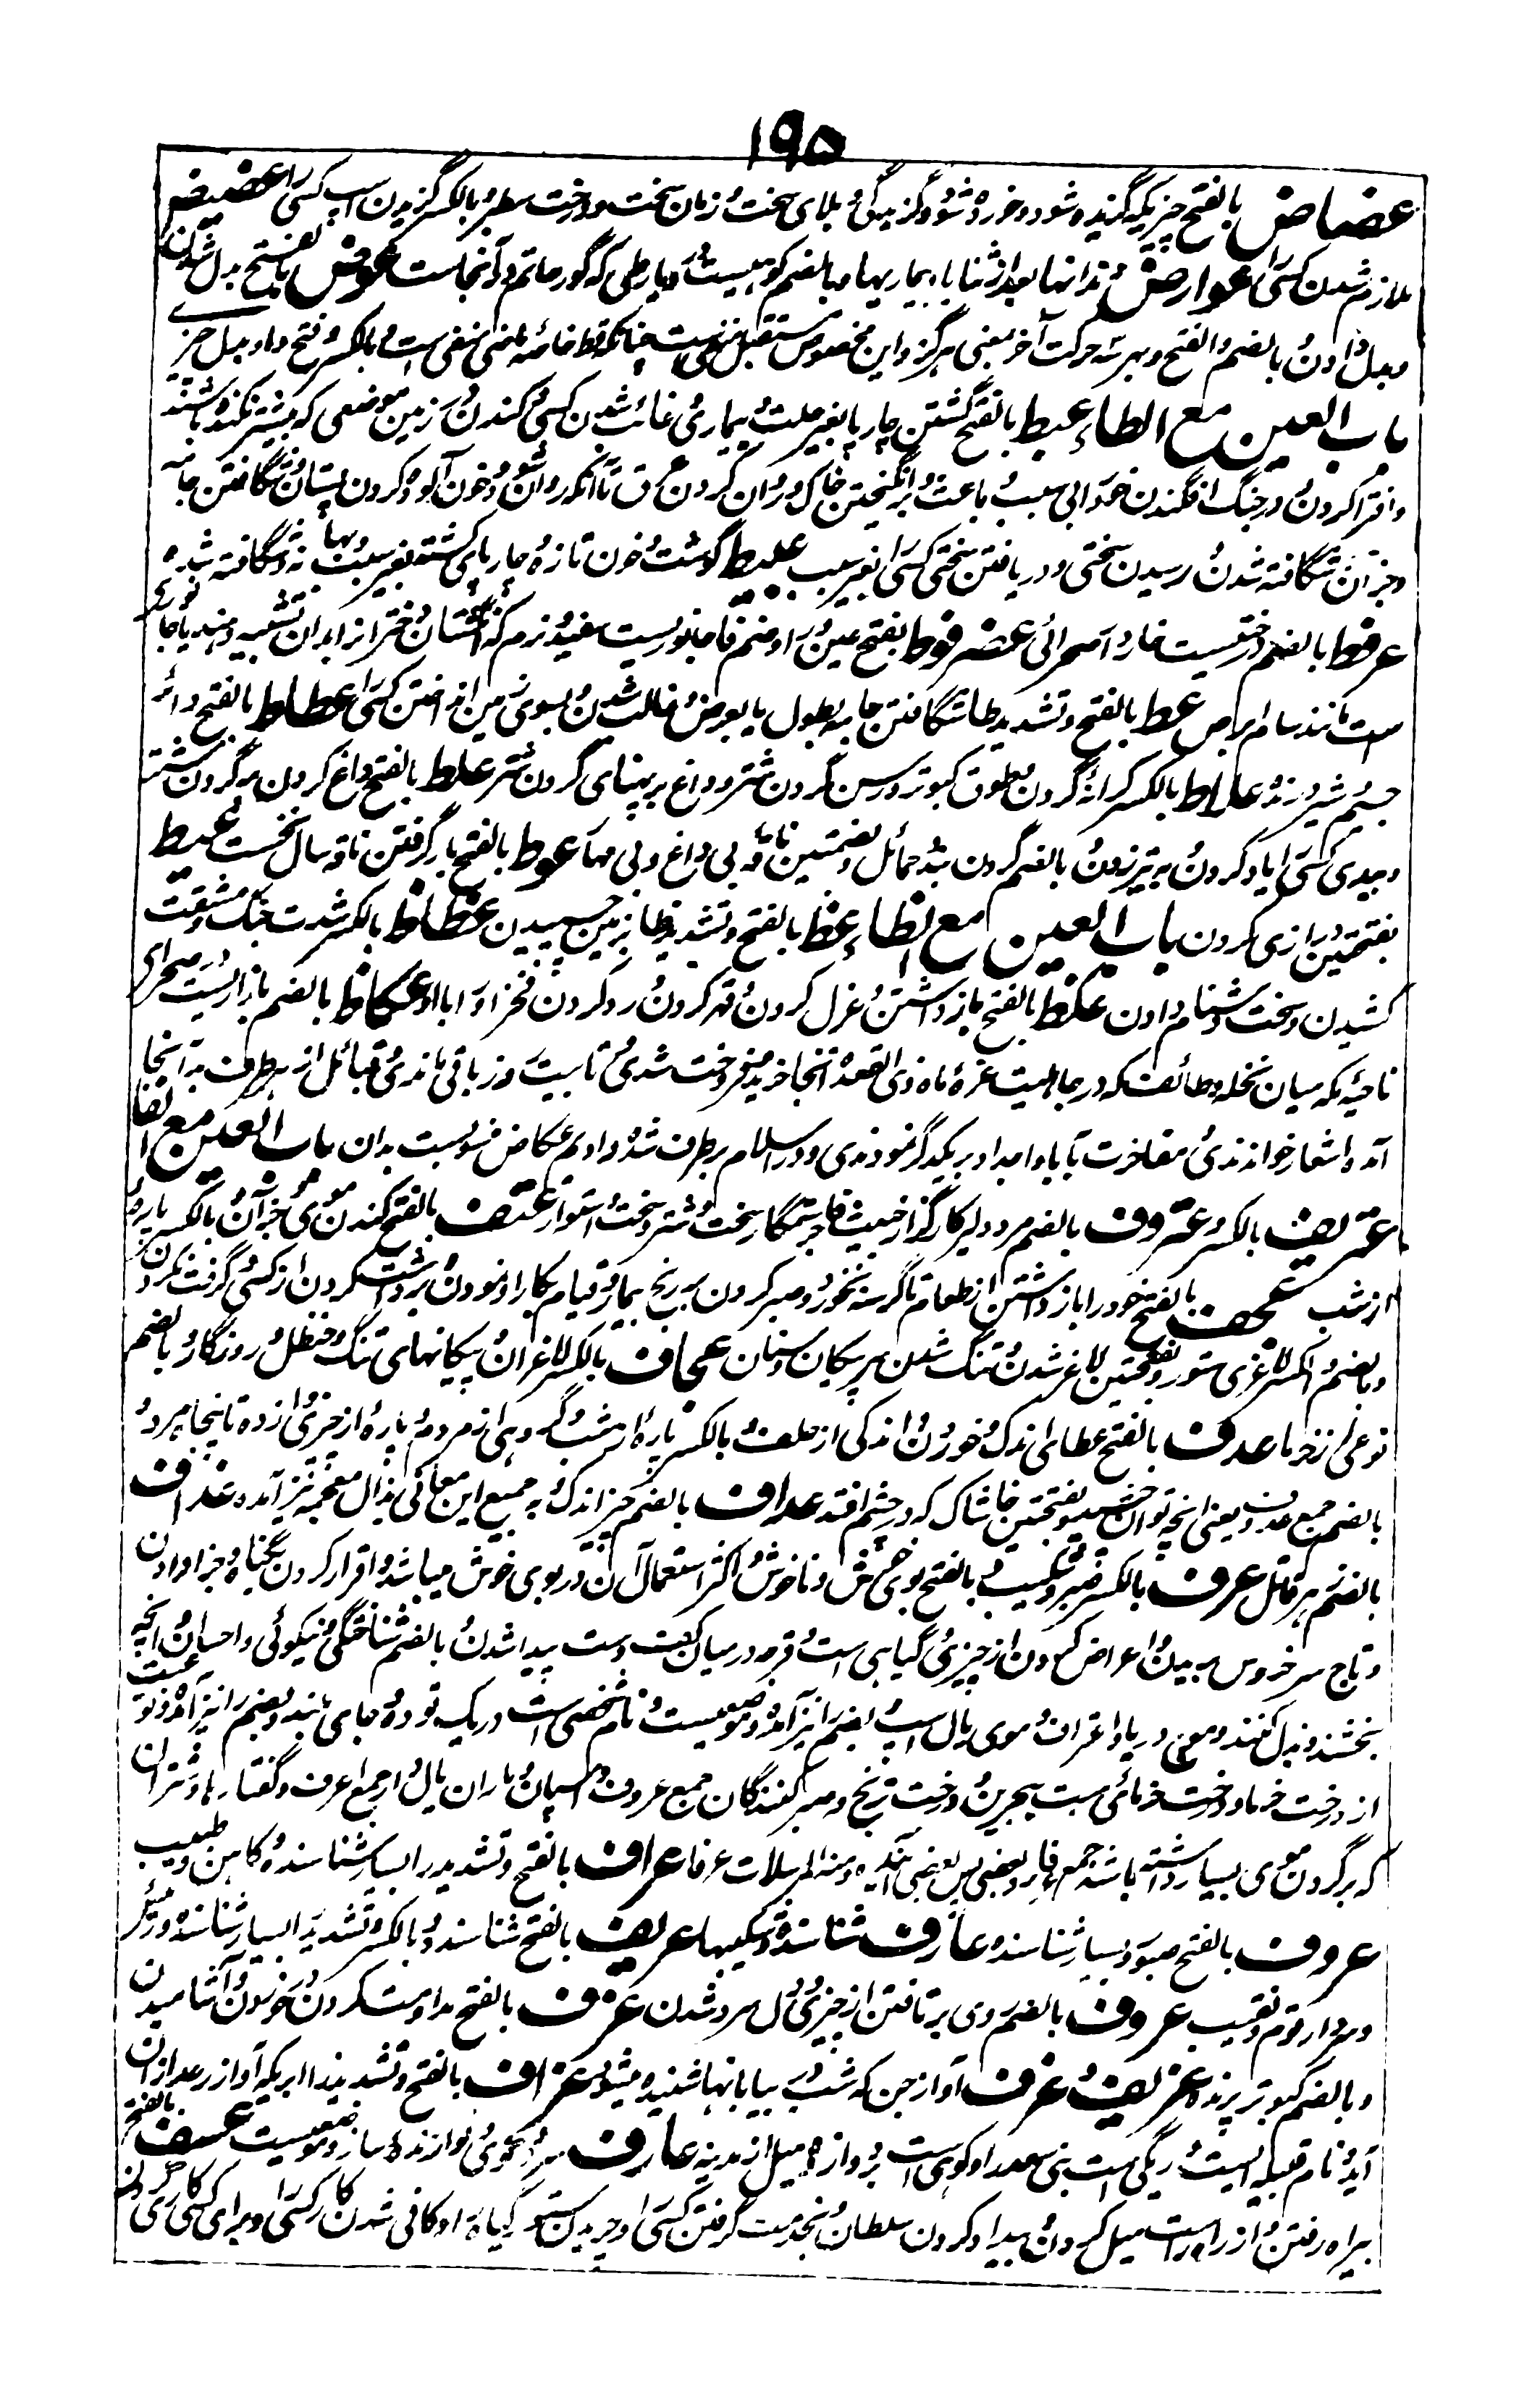 ۱۹۵
عضاض بالفتح چیزیکه گزیده شود و خورده شود و گزیدگی و بلای سخت و زمان سخت و درخت سطبر و بالکسر گزیدن اسپ کسی را عضیض
ملازم شدن کسی را عوارض دندانها بعد از ثنایا و بیماریها و بالضم کوهیست در بلاد طی که گور حاتم در آنجاست عوض بالفتح بدل شدن
و بدل دادن و بالضم و الفتح و بهر سه حرکت آخر بمعنی هرگز و این مخصوص مستقبل منفی است چنانکه قط خاصه ماضی منفی است و بالکسر و فتح واو بدل چیز
باب العین مع الطاء عبط بالفتح کشتن چارپا بغیر علت و بیماری و غائب شدن کسی و کندن زمین موضعی که پیشتر نکنده باشند
و افترا کردن و در جنگ افگندن خود را بی سبب و باعث و برانگیختن خاک و روان کردن عرق تا آنکه روان شود و خون آلوده کردن پستان و شگافتن جامه
و جز آن و شگافته شدن و رسیدن سختی و دریافتن سختی کسی را بغیر سبب عبیط گوشت و خون تازه و چارپای کشته بغیر سبب و شگافته شده
عرفط بالضم درختیست خاردار صحرائی عضرفوط بفتح عین و را و ضم فا جانوریست سفید و نرم که انگشتان دختر از ابدان تشبیه دهند یا جانوری
است مانند سام ابرص عط بالفتح و تشدید طا شگافتن جامه بطول یا بعرض و غالب شدن و بسوی زمین انداختن کسی را عطاط بالفتح دلاور
جسیم و شیر درنده علاط بالکسر کرانه گردن و طوق کبوتر و رسن گردن شتر و داغ بر پهنای گردن شتر علط بالفتح داغ کردن بر گردن شتر
و ببدی کسی را یاد کردن و به تیر زدن و بالضم گردن بند و حمائل و بضمتین ناقه بی داغ و بی مهار عوط بالفتح بار گرفتن ناقه سال نخست عیط
بفتحتین درازی گردن باب العین مع الظاء عظ بالفتح و تشدید ظا بزمین چسپیدن عظاظ بالکسر شدت جنگ و مشقت
کشیدن و سخت دشنام دادن عکظ بالفتح باز داشتن و عزل کردن و قهر کردن و رد کردن فخر او را با او عکاظ بالضم بازاریست در صحرای
ناحیه مکه میان نخله و طائف که در جاهلیت غره ماه ذی القعده آنجا خرید و فروخت شدی و تا بیست روز باقی ماندی و قبائل از هر طرف به آنجا
آمده اشعار خواندندی و مفاخرت آبا و اجداد بر یکدیگر نمودندی و در اسلام برطرف شد و ادیم عکاظی منسوبست بدان باب العین مع الفاء
عتریف بالکسر و عتروف بالضم مرد دلیر کارگذار و خبیث فاجر ستمگار و سخت و شتر سخت و استوار عتف بالفتح کندن موی و جز آن و بالکسر پاره
از شب عجف بالفتح خود را باز داشتن از طعام تا گرسنه نخورد و صبر کردن بر رنج بیمار و قیام بکار او نمودن و برداشت کردن از کسی و گرفت نکردن
و بالضم و الکسر لاغری ستور و بفتحتین لاغر شدن و تنگ شدن سر پیکان و سنان عجاف بالکسر لاغران و پیکانهای تنگ و حنظل و روزگار و بالضم
نوعی از خرما عدف بالفتح عطای اندک و خوردن و اندکی از علف و بالکسر پاره از شب و گروهی از مردم و پاره از چیزی و از ده تا پنجاه مرد و
بالضم جمع عدوف یعنی آنچه توان چشید و بفتحتین خاشاک که در چشم افتد عداف بالضم چیز اندک و به جمیع این معانی بذال معجمه نیز آمده عذاف
بالضم زهر قاتل عرف بالکسر صبر و شکیب و بالفتح بوی خوش و ناخوش و اکثر استعمال آن در بوی خوش میباشد و اقرار کردن بگناه و جزا دادن
و تاج سر خروس بریدن و اعراض کردن از چیزی و گیاهی است و قرحه در میان کف دست پیدا شدن و بالضم شناختگی و نیکوئی و احسان و آنچه
بخشند و بذل کنند و موج دریا و اعتراف و موی یال اسپ و بضم را نیز آمده و موضعیست و نام شخصی است و ریگ توده و جای بلند و بضم را نیز آمده و نوعیست
از درخت خرما و درخت خرمائی است ببحرین و درخت ترنج و صبر کنندگان جمع عروف و اسپان و ماران یال دار جمع اعرف و گفتارها و شتران
که بر گردن موی بسیار داشته باشند جمع عرفاء و بعضی پس بعضی آینده و منه المرسلات عرفا عراف بالفتح و تشدید را بسیار شناسنده و کاهن و طبیب
عروف بالفتح صبور و بسیار شناسنده عارف شناسنده و شکیبا عریف بالفتح شناسنده و بالکسر و تشدید را بسیار شناسنده و رئیس
و سردار قوم و نقیب عزوف بالضم روی برتافتن از چیزی و دل سرد شدن عزف بالفتح مداومت کردن در خوردن و آشامیدن
و بالضم کبوتر پرنده عزیف و عزف آواز جن که شب در بیابانها شنیده میشود عزاف بالفتح و تشدید زا ابریکه آواز رعد ازان
آید و نام قبیله ایست و ریگی است بنی سعد را و کوهی است بر دوازده میل از مدینه عازف سرود گوی و نوازنده ساز و موضعیست عسف بالفتح
بیراه رفتن و از راه راست میل کردن و بیداد کردن سلطان و بخدمت گرفتن کسی را و چریدن ستور گیاه را و کافی شدن کار کسی را و برای کسی کاری کردن